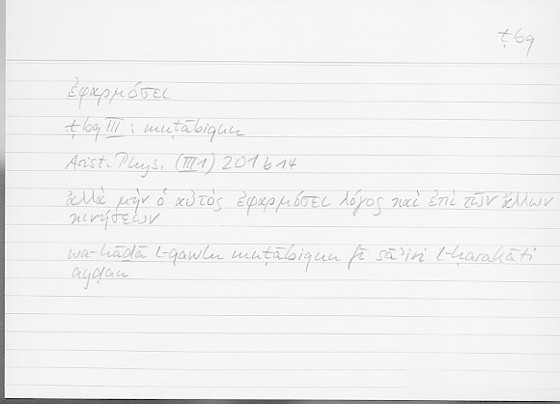 ṭbq
ἐφαρμόσει
ṭbq III : muṭābiqun
Arist. Phys. (III 1) 201 b 14
ἀλλὰ μὴν ὁ αὐτὸς ἐφαρμόσει λόγος καὶ ἐπὶ τῶν ἄλλων
κινήσεων
wa-hāḏā l-qawlu muṭābiqun fī sāʾiri l-ḥarakāti
ayḍan